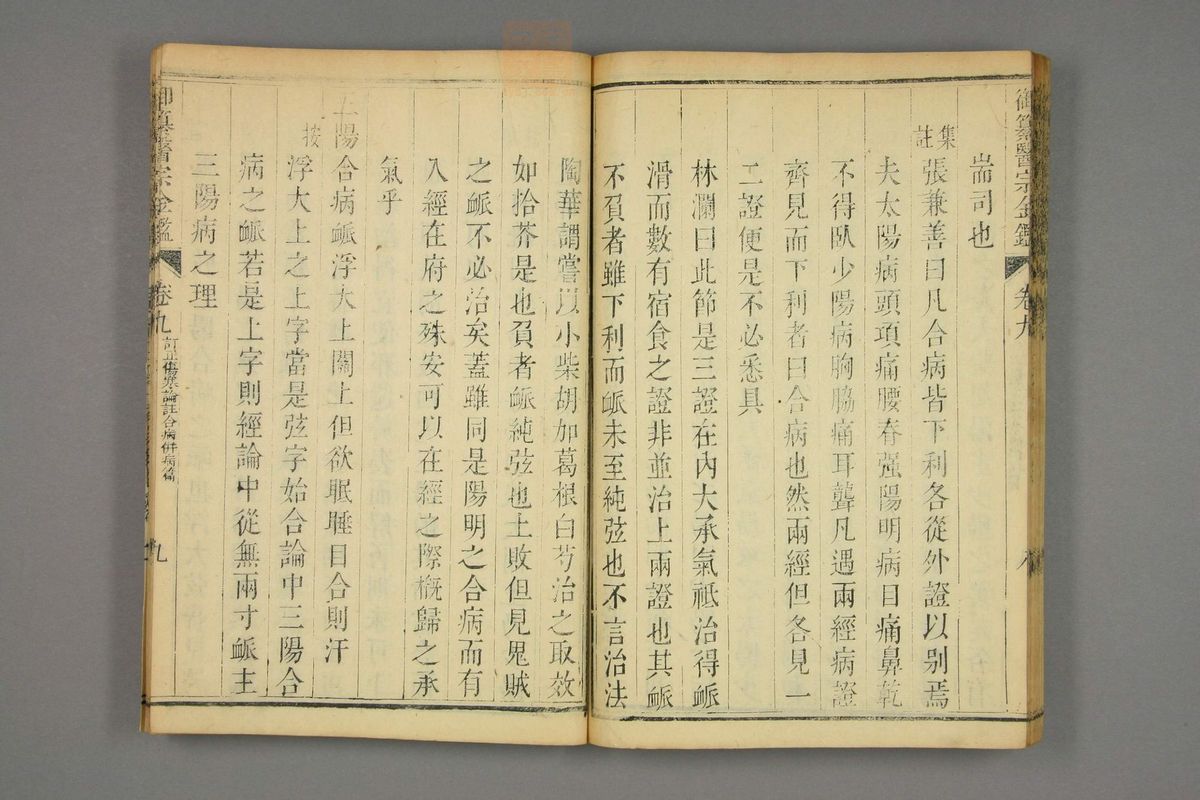 御纂醫宗金鑑 卷九 八
耑司也
集註
張兼善曰凡合病皆下利各從外證以别焉
夫太陽病頭項痛腰脊强陽明病目痛鼻乾
不得臥少陽病胸脇痛耳聾凡遇兩經病證
齊見而下利者曰合病也然兩經但各見一
二證便是不必悉具
林瀾曰此節是三證在內大承氣祗治得脈
滑而數有宿食之證非並治上兩證也其脈
不負者雖下利而脈未至純弦也不言治法
陶華謂嘗以小柴胡加葛根白芍治之取效
如拾芥是也負者脈純弦也土敗但見鬼賊
之脈不必治矣蓋雖同是陽明之合病而有
入經在府之殊安可以在經之際槪歸之承
氣乎
三陽合病脈浮大上關上但欲眠睡目合則汗
按
浮大上之上字當是弦字始合論中三陽合
病之脈若是上字則經論中從無兩寸脈主
三陽病之理
御纂醫宗金鑑 卷九 訂正傷寒論註合病併病篇 九